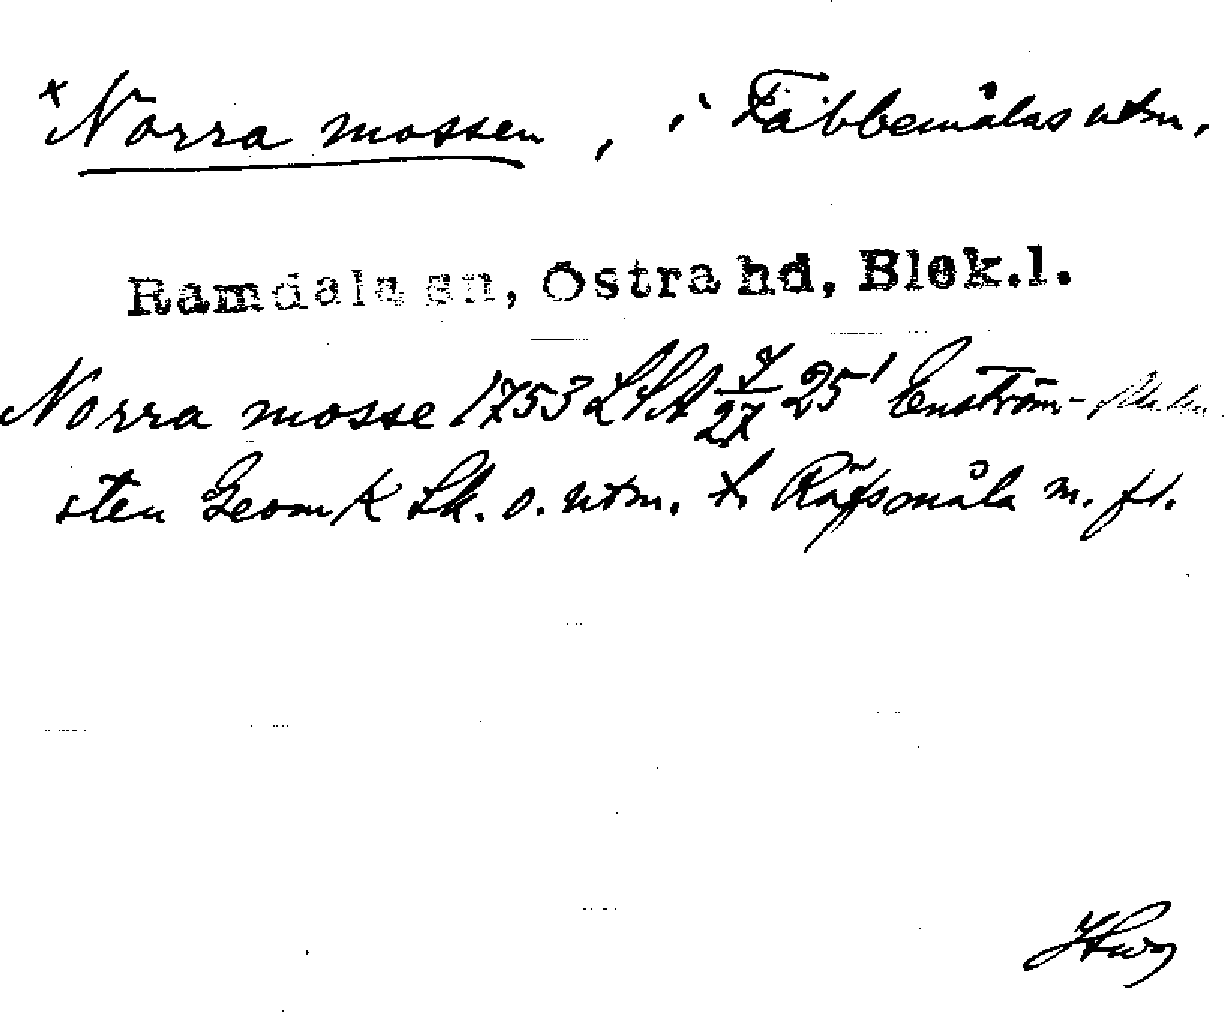 ×Norra mossen, i Fäbbemålas utm,
Ramdala sn, Östra hd, Blek.l.
Norra mosse 1753 LSA 7/27 25' Enström-
sten Geom K Lk. o. utm. t. Räfsmåla m. fl.